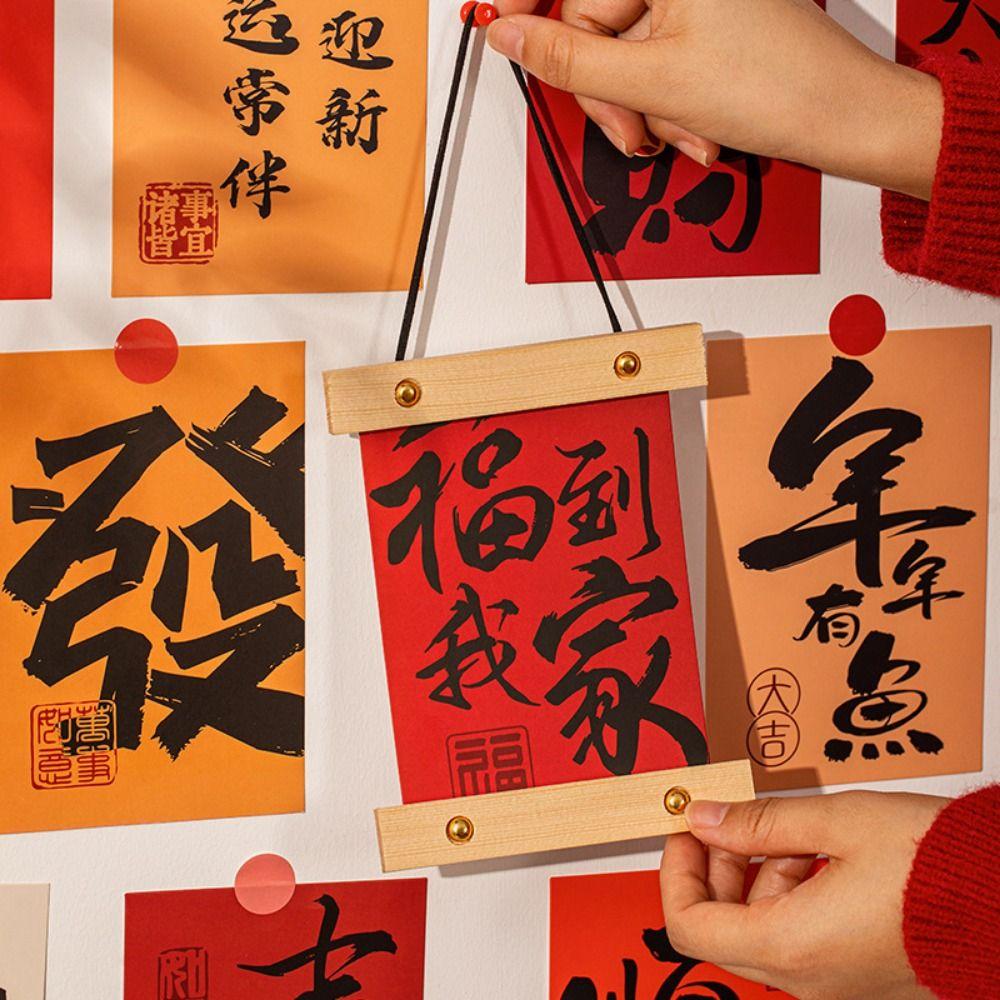 迎新
运常伴
诸事
皆宜
發
萬事
如意
福到
我家
福
年
年
有
魚
大
吉
吉
如